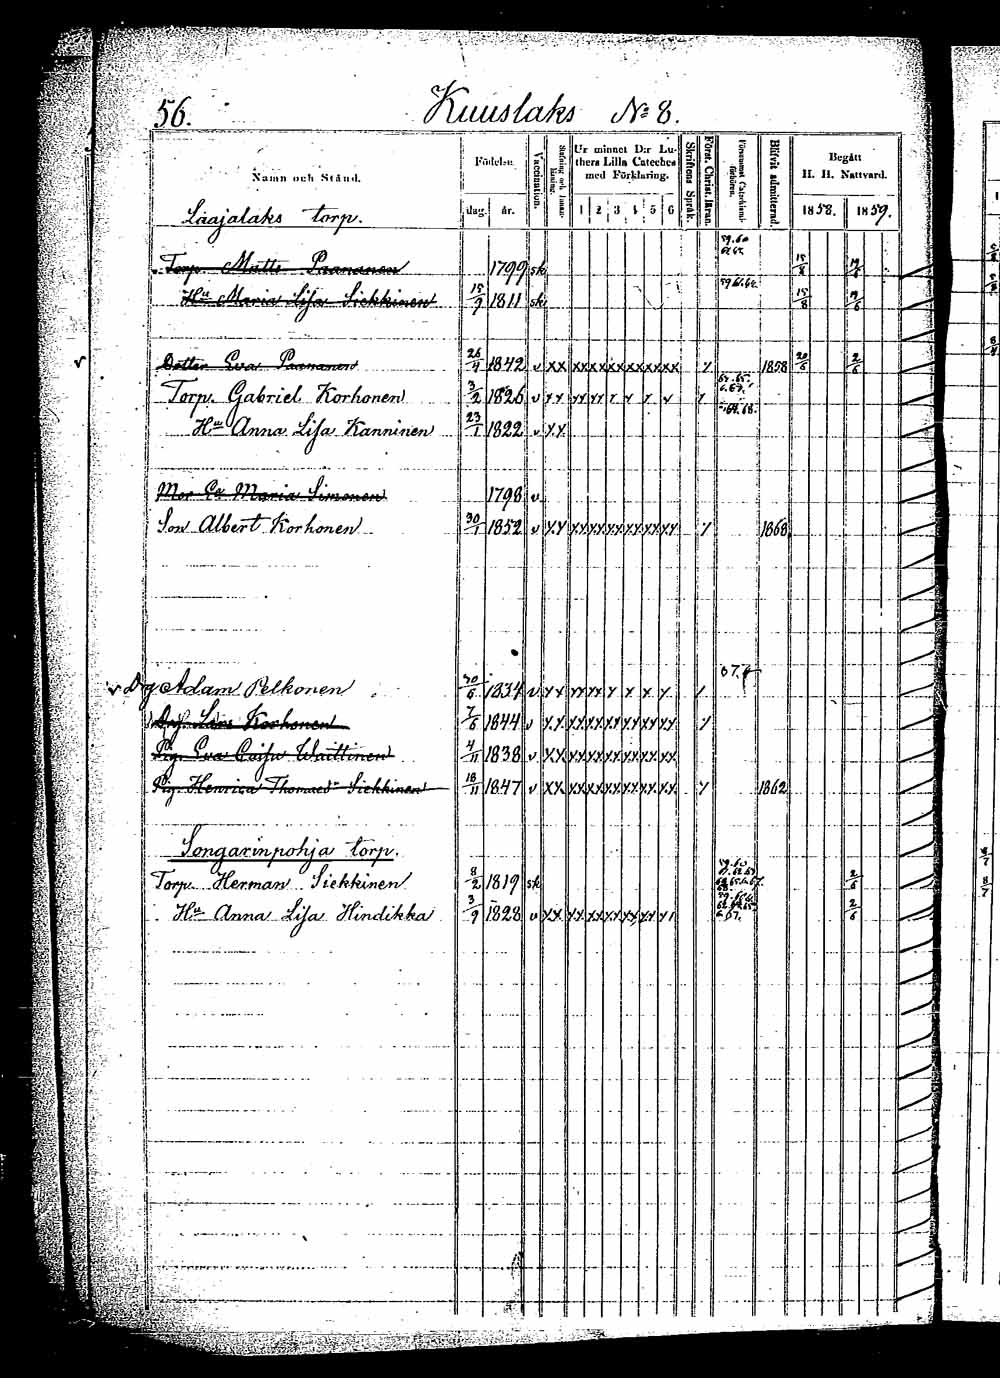 56. Kuuslaks № 8.
Namn och Stånd. Födelse. dag. år. Vaccination. Ur minnet D:r Luthers Lilla Cateches med Förklaring. 1 2 3 4 5 6 Skriftens Språk. Först. Christ. läran. Blifvit admitterad. Begått H. H. Nattvard. 1858. 1859.
Laajalaks torp.
59.60
Torp. Matts Paananen 1799 sk 15/8 19/6
59 61.62
Hu Maria Lisa Siekkinen 15/9 1811 sk 15/8 19/6
v Dotter Eva Paananen 26/4 1842 v xx xx xx xx xx xx xx 1858 20/6 2/6
Torp. Gabriel Korhonen 3/2 1826 v xx xx x x x x
Hu Anna Lisa Kanninen 23/1 1822 v xx
Mor Maria Simonen 1798 v
Son Albert Korhonen 30/1 1852 v xx xx xx xx xx xx xx 1868
67.
v Dg Adam Pelkonen 30/6 1834 v xx xx x x x x
Drg. Lars Korhonen 7/6 1844 v xx xx xx xx xx xx xx
Pig. Eva Caisa Waittinen 4/11 1838 v xx xx xx xx xx xx xx
Pig. Henrica Thomasdr Siekkinen 18/11 1847 v xx xx xx xx xx xx xx 1862
Songarinpohja torp.
59.60
Torp. Herman Siekkinen 8/2 1819 sk 2/6
Hu Anna Lisa Hindikka 3/9 1828 v xx xx xx xx xx xx 2/6